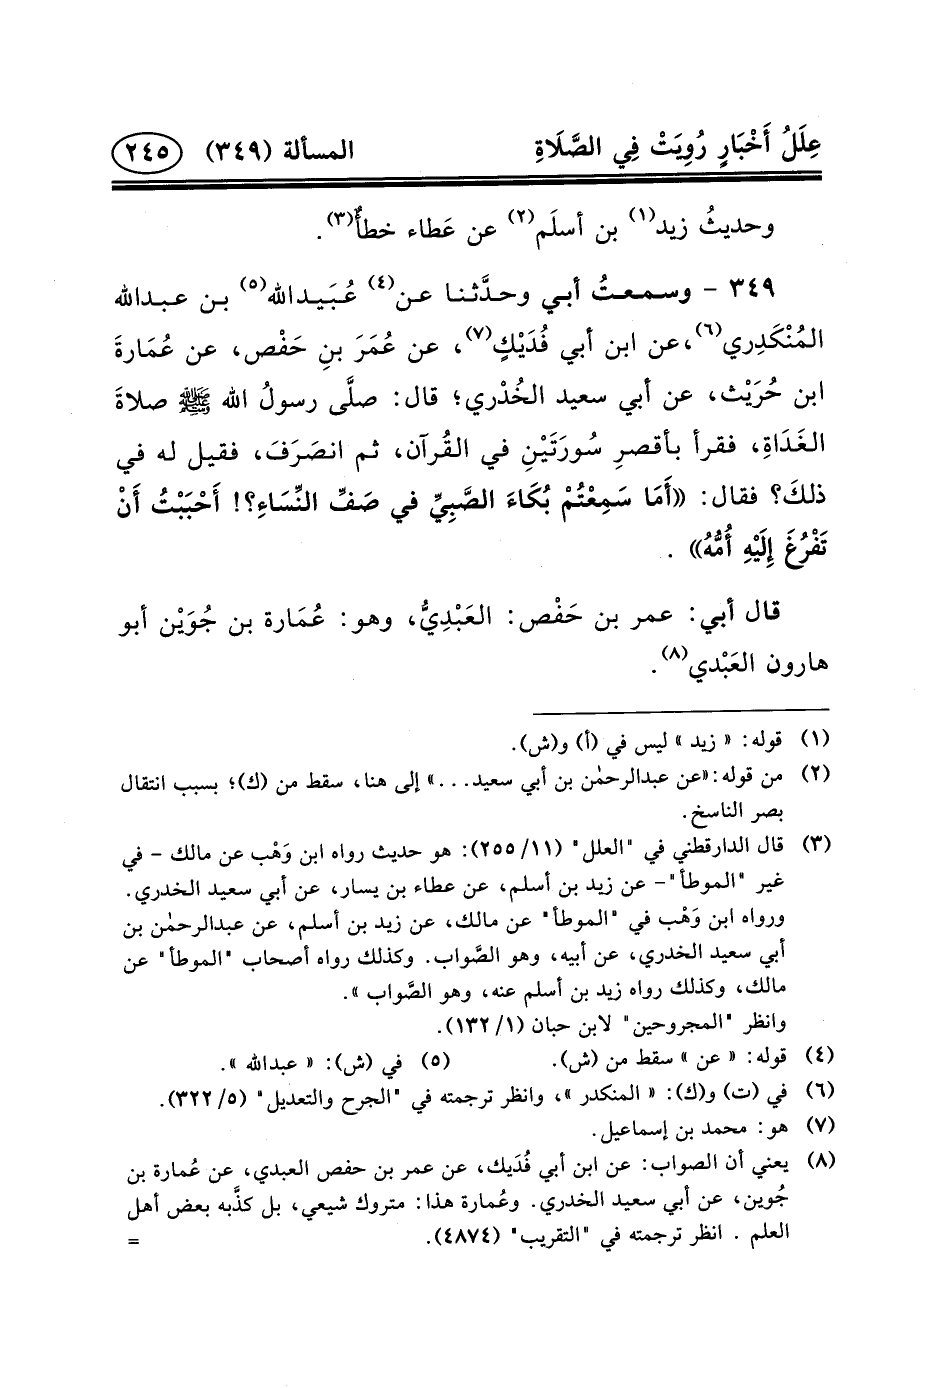 عِلَلُ أَخْبَارٍ رُوِيَتْ فِي الصَّلَاةِ المسألة (٣٤٩) ٢٤٥
وحديثُ زيد(١) بن أسلَم(٢) عن عَطاء خطأٌ(٣).
٣٤٩ - وسمعتُ أبي وحدَّثنا عن(٤) عُبَيدالله(٥) بن عبدالله
المُنْكَدِري(٦)، عن ابن أبي فُدَيْكٍ(٧)، عن عُمَرَ بنِ حَفْص، عن عُمَارةَ
ابن حُرَيْث، عن أبي سعيد الخُدْري؛ قال: صلَّى رسولُ الله ﷺ صلاةَ
الغَدَاةِ، فقرأ بأقصرِ سُورَتَيْنِ في القُرآن، ثم انصَرَفَ، فقيل له في
ذلكَ؟ فقال: «أَمَا سَمِعْتُمْ بُكَاءَ الصَّبِيِّ في صَفِّ النِّسَاءِ؟! أَحْبَبْتُ أَنْ
تَفْرُغَ إِلَيْهِ أُمُّهُ» .
قال أبي: عمر بن حَفْص: العَبْدِيُّ، وهو: عُمَارة بن جُوَيْن أبو
هارون العَبْدي(٨).
(١) قوله: « زيد » ليس في (أ) و(ش).
(٢) من قوله: «عن عبدالرحمٰن بن أبي سعيد...» إلى هنا، سقط من (ك)؛ بسبب انتقال
بصر الناسخ.
(٣) قال الدارقطني في "العلل" (١١/ ٢٥٥): هو حديث رواه ابن وَهْب عن مالك - في
غير "الموطأ"- عن زيد بن أسلم، عن عطاء بن يسار، عن أبي سعيد الخدري.
ورواه ابن وَهْب في "الموطأ" عن مالك، عن زيد بن أسلم، عن عبدالرحمٰن بن
أبي سعيد الخدري، عن أبيه، وهو الصَّواب. وكذلك رواه أصحاب "الموطأ" عن
مالك، وكذلك رواه زيد بن أسلم عنه، وهو الصَّواب ».
وانظر "المجروحين" لابن حبان (١/ ١٣٢).
(٤) قوله: « عن » سقط من (ش). (٥) في (ش): « عبدالله ».
(٦) في (ت) و(ك): « المنكدر »، وانظر ترجمته في "الجرح والتعديل" (٥/ ٣٢٢).
(٧) هو: محمد بن إسماعيل.
(٨) يعني أن الصواب: عن ابن أبي فُدَيك، عن عمر بن حفص العبدي، عن عُمارة بن
جُوين، عن أبي سعيد الخدري. وعُمارة هذا: متروك شيعي، بل كذَّبه بعض أهل
العلم . انظر ترجمته في "التقريب" (٤٨٧٤). =